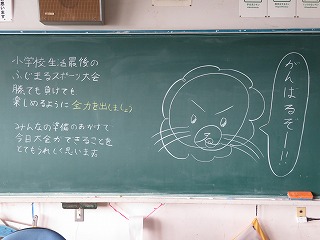 小学校生活最後の
ふじまるスポーツ大会
勝っても負けても
楽しめるように 全力を出しましょう
みんなの準備のおかげで
今日大会ができることを
とてもうれしく思います
がんばるぞー!!